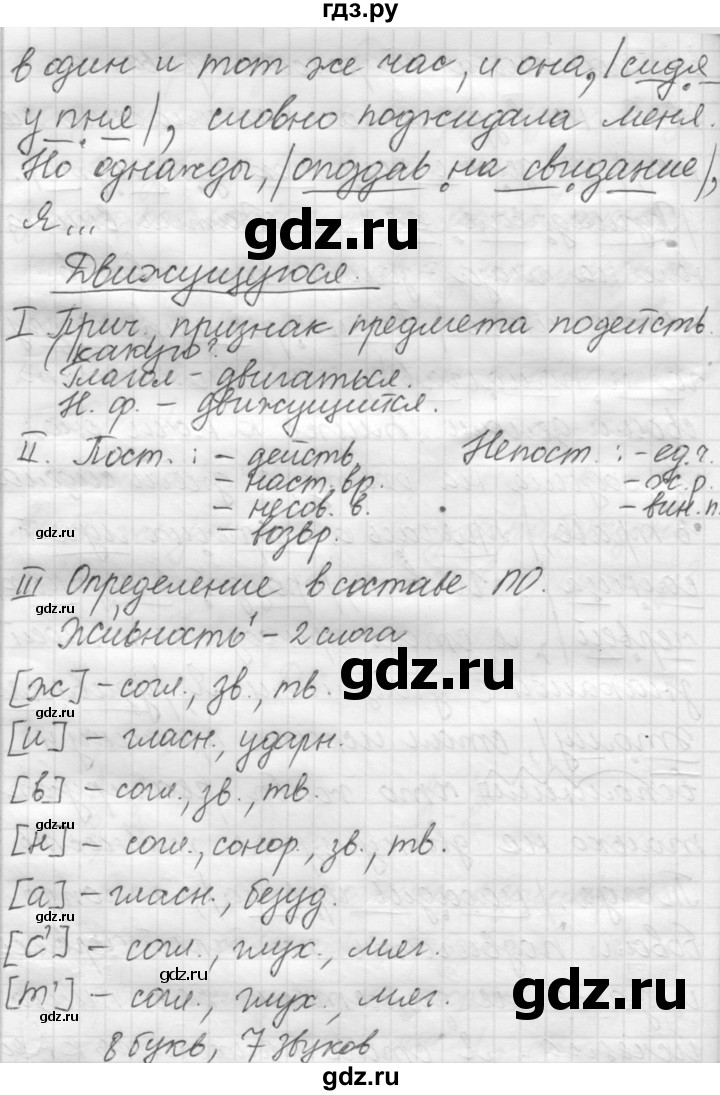 гдз.ру
в один и тот же час, и она, |сидя
у пня|, словно поджидала меня.
Но однажды, |опоздав на свидание|,
я...
gdz.ru
Движущуюся.
I Прич., признак предмета по действ.
какую?
Глагол - двигаться.
Н. ф. - движущийся.
II. Пост.: - действ. Непост.: - ед.ч.
- наст. вр. - ж.р.
- несов. в. - вин.п.
gdz.ru
- возвр.
III Определение в составе ПО.
gdz.ru
Живность - 2 слога
gdz.ru
[ж] - согл., зв., тв.
gdz.ru
[и] - гласн., ударн.
gdz.ru
[в] - согл., зв., тв.
gdz.ru
[н] - согл., сонор., зв., тв.
gdz.ru
[а] - гласн., безуд.
gdz.ru
[с'] - согл., глух., мяг.
gdz.ru
[т'] - согл., глух., мяг.
gdz.ru
8 букв, 7 звуков
gdz.ru